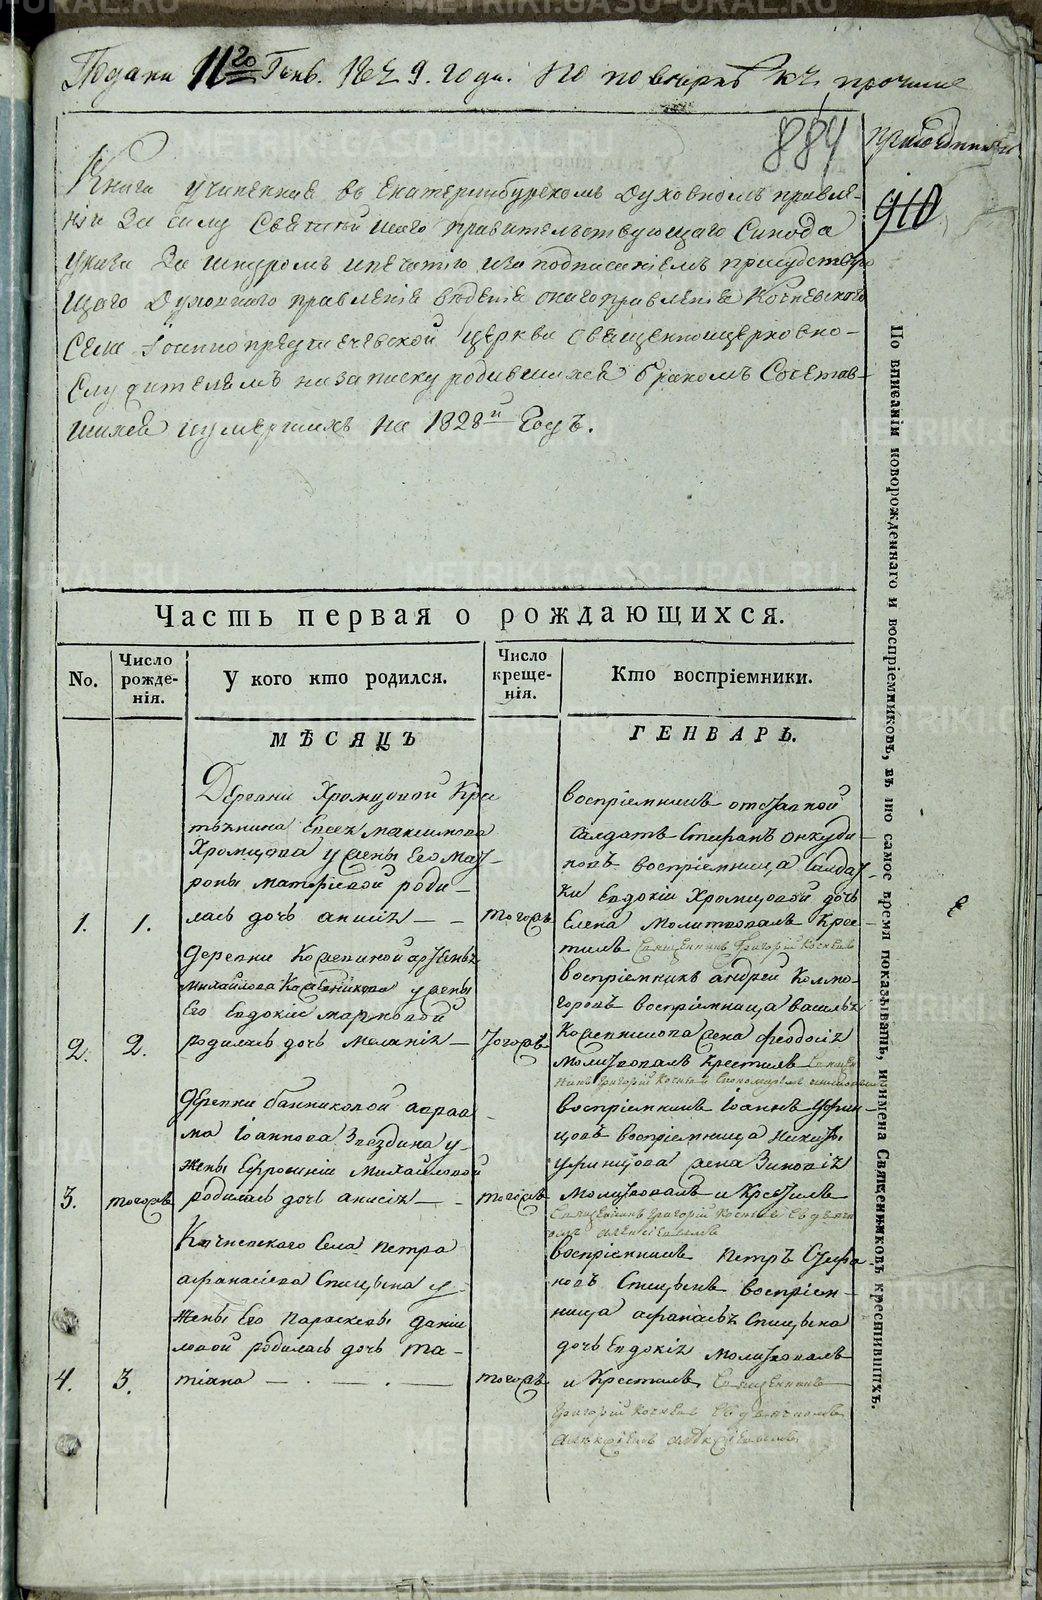 Поданы 11го Генв. 1829. года. И по поверкѣ къ прочимъ
приобщены
884
910
Книга учиненная въ Екатеринбургскомъ Духовномъ правле-
ніи в силу Святѣйшаго правительствующаго Синода
указа за шнуромъ и печатью и за подписаніемъ присудствую
щаго Духовнаго правленія вѣденія онаго правленія Кочневского
села Іоанно предтечевской церкви священно и церковно-
служителямъ на записку родившихся бракомъ сочетав-
шихся и умершихъ на 1828й Годъ.
Часть первая о рождающихся.
No.
Число рожде-нія.
У кого кто родился.
Число креще-нія.
Кто воспріемники.
МѢСЯЦЪ
ГЕНВАРЬ.
1.
1.
Деревни Хромцовой Кре
стьянина Евсея Максимова
Хромцова у жены Его Мат-
роны Матфіевой роди-
лась дочь анисия
тогожъ
воспріемникъ отставной
салдатъ Стефанъ
новъ воспріемница салдат-
ки Евдокіи Хромцовой дочь
Елена молитвовалъ крес-
тилъ Священникъ Григорій Кочневъ
2.
2.
Деревни
Михайлова у жены
Его Евдокіи Марковой
родилась дочь Меланія
тогожъ
воспріемникъ андрей Колмо-
горовъ воспріемница василья
жена феодосия
молитвовалъ крестилъ Священ
никъ Григорій Кочневъ
3.
тогожъ
Деревни банниковой авраа-
ма Іоаннова Звездина у
жены Ефросиніи Михайловой
родилась дочь анисия
тогожъ
воспріемникъ Іоаннъ Уфин-
цовъ воспріемница никиты
Уфинцова жена Зиновія
молитвовалъ и крестилъ
Священникъ Григорій Кочневъ
4.
3.
Кочневского села петра
афанасіева Спицына у
жены Его Параскевы Даніи
ловой родилась дочь та-
тіана
тогожъ
воспріемникъ петръ Стефа-
новъ Спицынъ воспріем-
ница афанасья Спицына
дочь Евдокія молитвовалъ
и крестилъ Священникъ
Григорій Кочневъ
По вписаніи новорожденнаго и воспріемниковъ, въ то самое время показывать, и имена Священниковъ крестившихъ.
METRIKI.GASU-URAL.RU